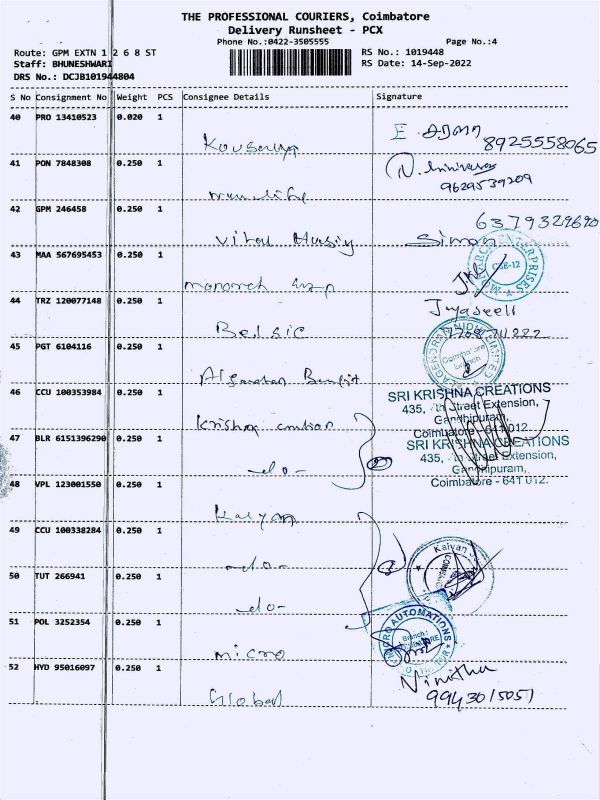 THE PROFESSIONAL COURIERS, Coimbatore
Delivery Runsheet - PCX
Phone No.:0422-3505555 Page No.:4
Route: GPM EXTN 1 2 6 8 ST RS No.: 1019448
Staff: BHUNESHWARI RS Date: 14-Sep-2022
DRS No.: DCJB101944804
S No Consignment No Weight PCS Consignee Details Signature
40 PRO 13410523 0.020 1
8925558065
41 PON 7848308 0.250 1
9629539209
42 GPM 246458 0.250 1
6379329690
Simon
43 MAA 567695453 0.250 1
ENTERPRISES
CBE-12
44 TRZ 120077148 0.250 1
Belsic
45 PGT 6104116 0.250 1
Coimbatore
Branch
46 CCU 100353984 0.250 1
SRI KRISHNA CREATIONS
435, 7th Street Extension,
Gandhipuram,
Coimbatore - 641 012.
Krishna
47 BLR 6151396290 0.250 1
SRI KRISHNA CREATIONS
435, 7th Street Extension,
Gandhipuram,
Coimbatore - 641 012.
-do-
48 VPL 123001550 0.250 1
Kalyan
49 CCU 100338284 0.250 1
Kalyan
-do-
50 TUT 266941 0.250 1
-do-
51 POL 3252354 0.250 1
MICRO AUTOMATIONS
Branch:
micro
52 HYD 95016097 0.250 1
Vinitha
9943015051
Global